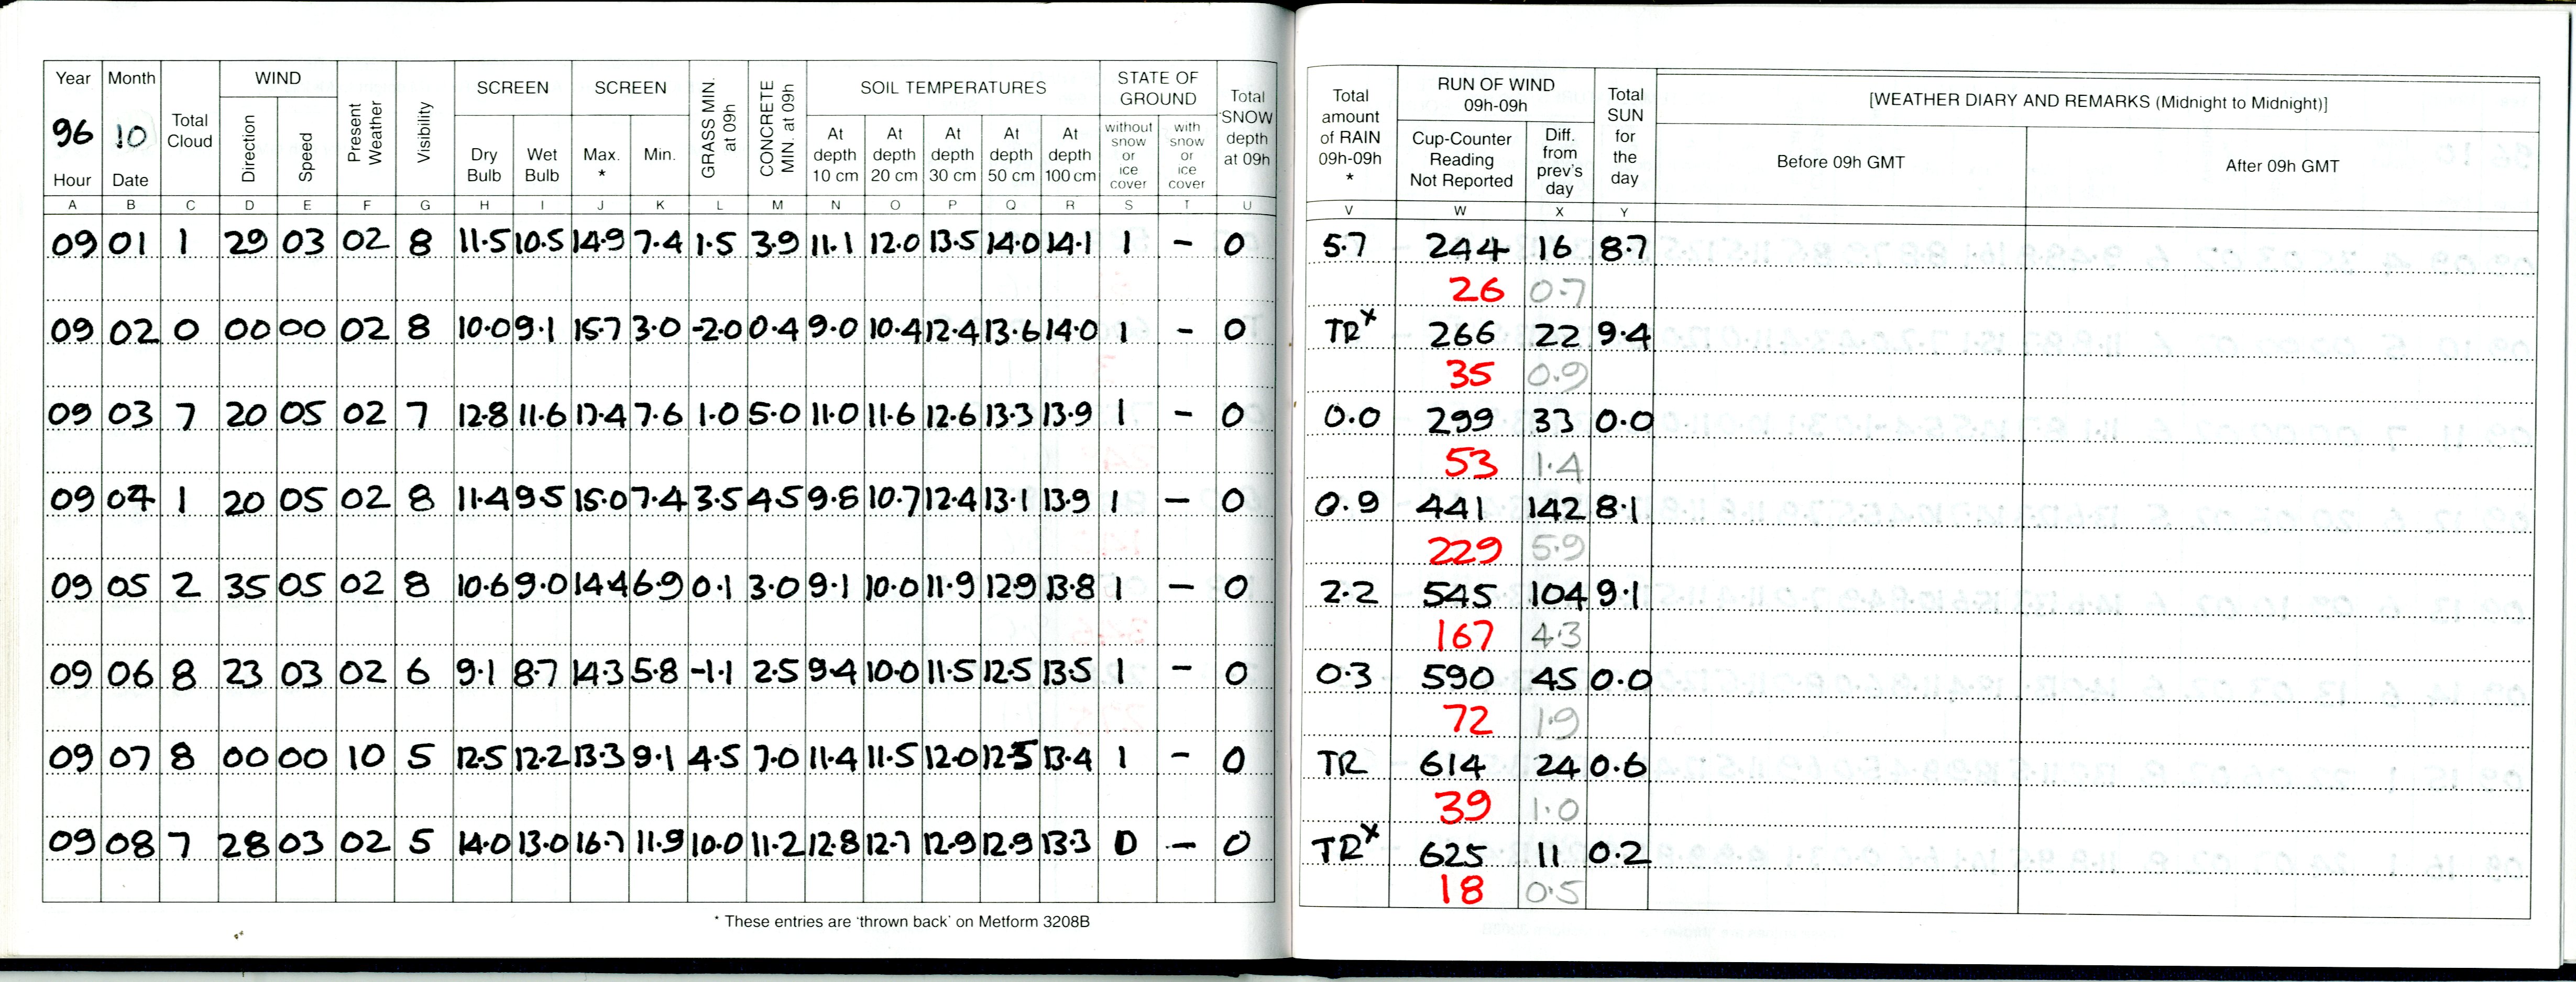 Year Month Total Cloud WIND Present Weather Visibility SCREEN SCREEN GRASS MIN. at 09h CONCRETE MIN. at 09h SOIL TEMPERATURES STATE OF GROUND Total SNOW depth at 09h Total amount of RAIN 09h-09h * RUN OF WIND 09h-09h Total SUN for the day [WEATHER DIARY AND REMARKS (Midnight to Midnight)]
96 10 Direction Speed Dry Bulb Wet Bulb Max. * Min. At depth 10 cm At depth 20 cm At depth 30 cm At depth 50 cm At depth 100 cm without snow or ice cover with snow or ice cover Cup-Counter Reading Not Reported Diff. from prev's day Before 09h GMT After 09h GMT
Hour Date
A B C D E F G H I J K L M N O P Q R S T U V W X Y
09 01 1 29 03 02 8 11.5 10.5 14.9 7.4 1.5 3.9 11.1 12.0 13.5 14.0 14.1 1 - 0 5.7 244 16 8.7
26 0.7
09 02 0 00 00 02 8 10.0 9.1 15.7 3.0 -2.0 0.4 9.0 10.4 12.4 13.6 14.0 1 - 0 TRx 266 22 9.4
35 0.9
09 03 7 20 05 02 7 12.8 11.6 17.4 7.6 1.0 5.0 11.0 11.6 12.6 13.3 13.9 1 - 0 0.0 299 33 0.0
53 1.4
09 04 1 20 05 02 8 11.4 9.5 15.0 7.4 3.5 4.5 9.8 10.7 12.4 13.1 13.9 1 - 0 0.9 441 142 8.1
229 5.9
09 05 2 35 05 02 8 10.6 9.0 14.4 6.9 0.1 3.0 9.1 10.0 11.9 12.9 13.8 1 - 0 2.2 545 104 9.1
167 4.3
09 06 8 23 03 02 6 9.1 8.7 14.3 5.8 -1.1 2.5 9.4 10.0 11.5 12.5 13.5 1 - 0 0.3 590 45 0.0
72 1.9
09 07 8 00 00 10 5 12.5 12.2 13.3 9.1 4.5 7.0 11.4 11.5 12.0 12.5 13.4 1 - 0 TR 614 24 0.6
39 1.0
09 08 7 28 03 02 5 14.0 13.0 16.7 11.9 10.0 11.2 12.8 12.7 12.9 12.9 13.3 0 - 0 TRx 625 11 0.2
18 0.5
* These entries are 'thrown back' on Metform 3208B